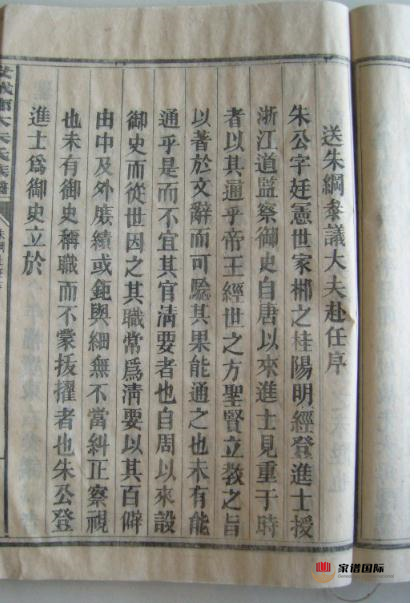 送朱綱參議大夫赴任序
朱公字廷憲世家郴之桂陽明經登進士授
浙江道監察御史自唐以來進士見重于時
者以其通乎帝王經世之方聖賢立教之旨
以著於文辭而可驗其果能通之也未有能
通乎是而不宜其官清要者也自周以來設
御史而從世因之其職常為清要以其百僻
由中及外庶績或鉅與細無不當糾正察視
也未有御史稱職而不蒙拔擢者也朱公登
進士爲御史立於
大朱氏族譜
家谱国际